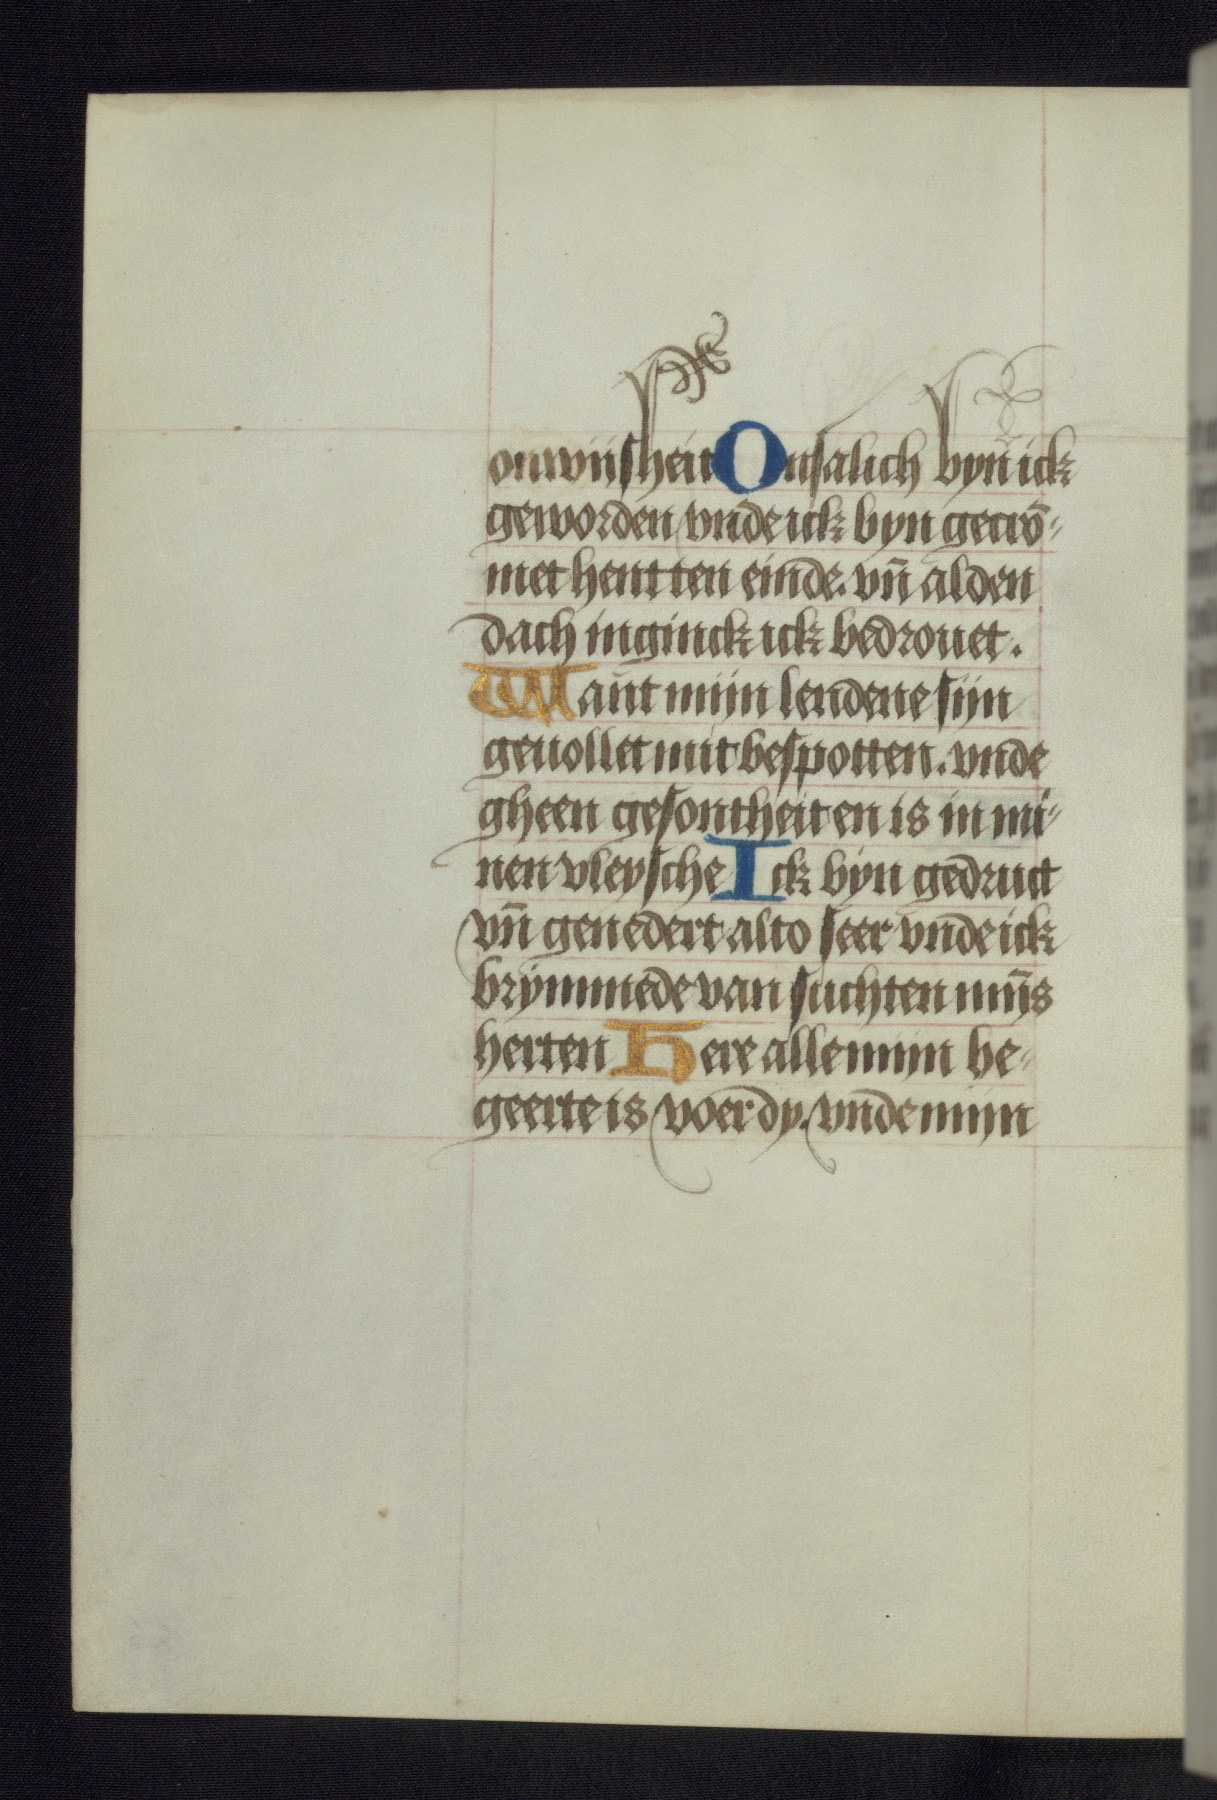 onwijsheit Onsalich byn̄ ick
geworden vnde ick byn gecrō⸗
met hent ten einde. vn̄ alden
dach inginck ick bedrouet.
Wan̄t mijn lendene sijn
geuollet mit bespotten. vnde
gheen gesontheit en is in mi⸗
nen vleysche Ick byn gedruct
vn̄ genedert alto seer vnde ick
brymmede van suchten mijn̄s
herten Here alle mijn be⸗
geerte is voer dy. vnde mijn